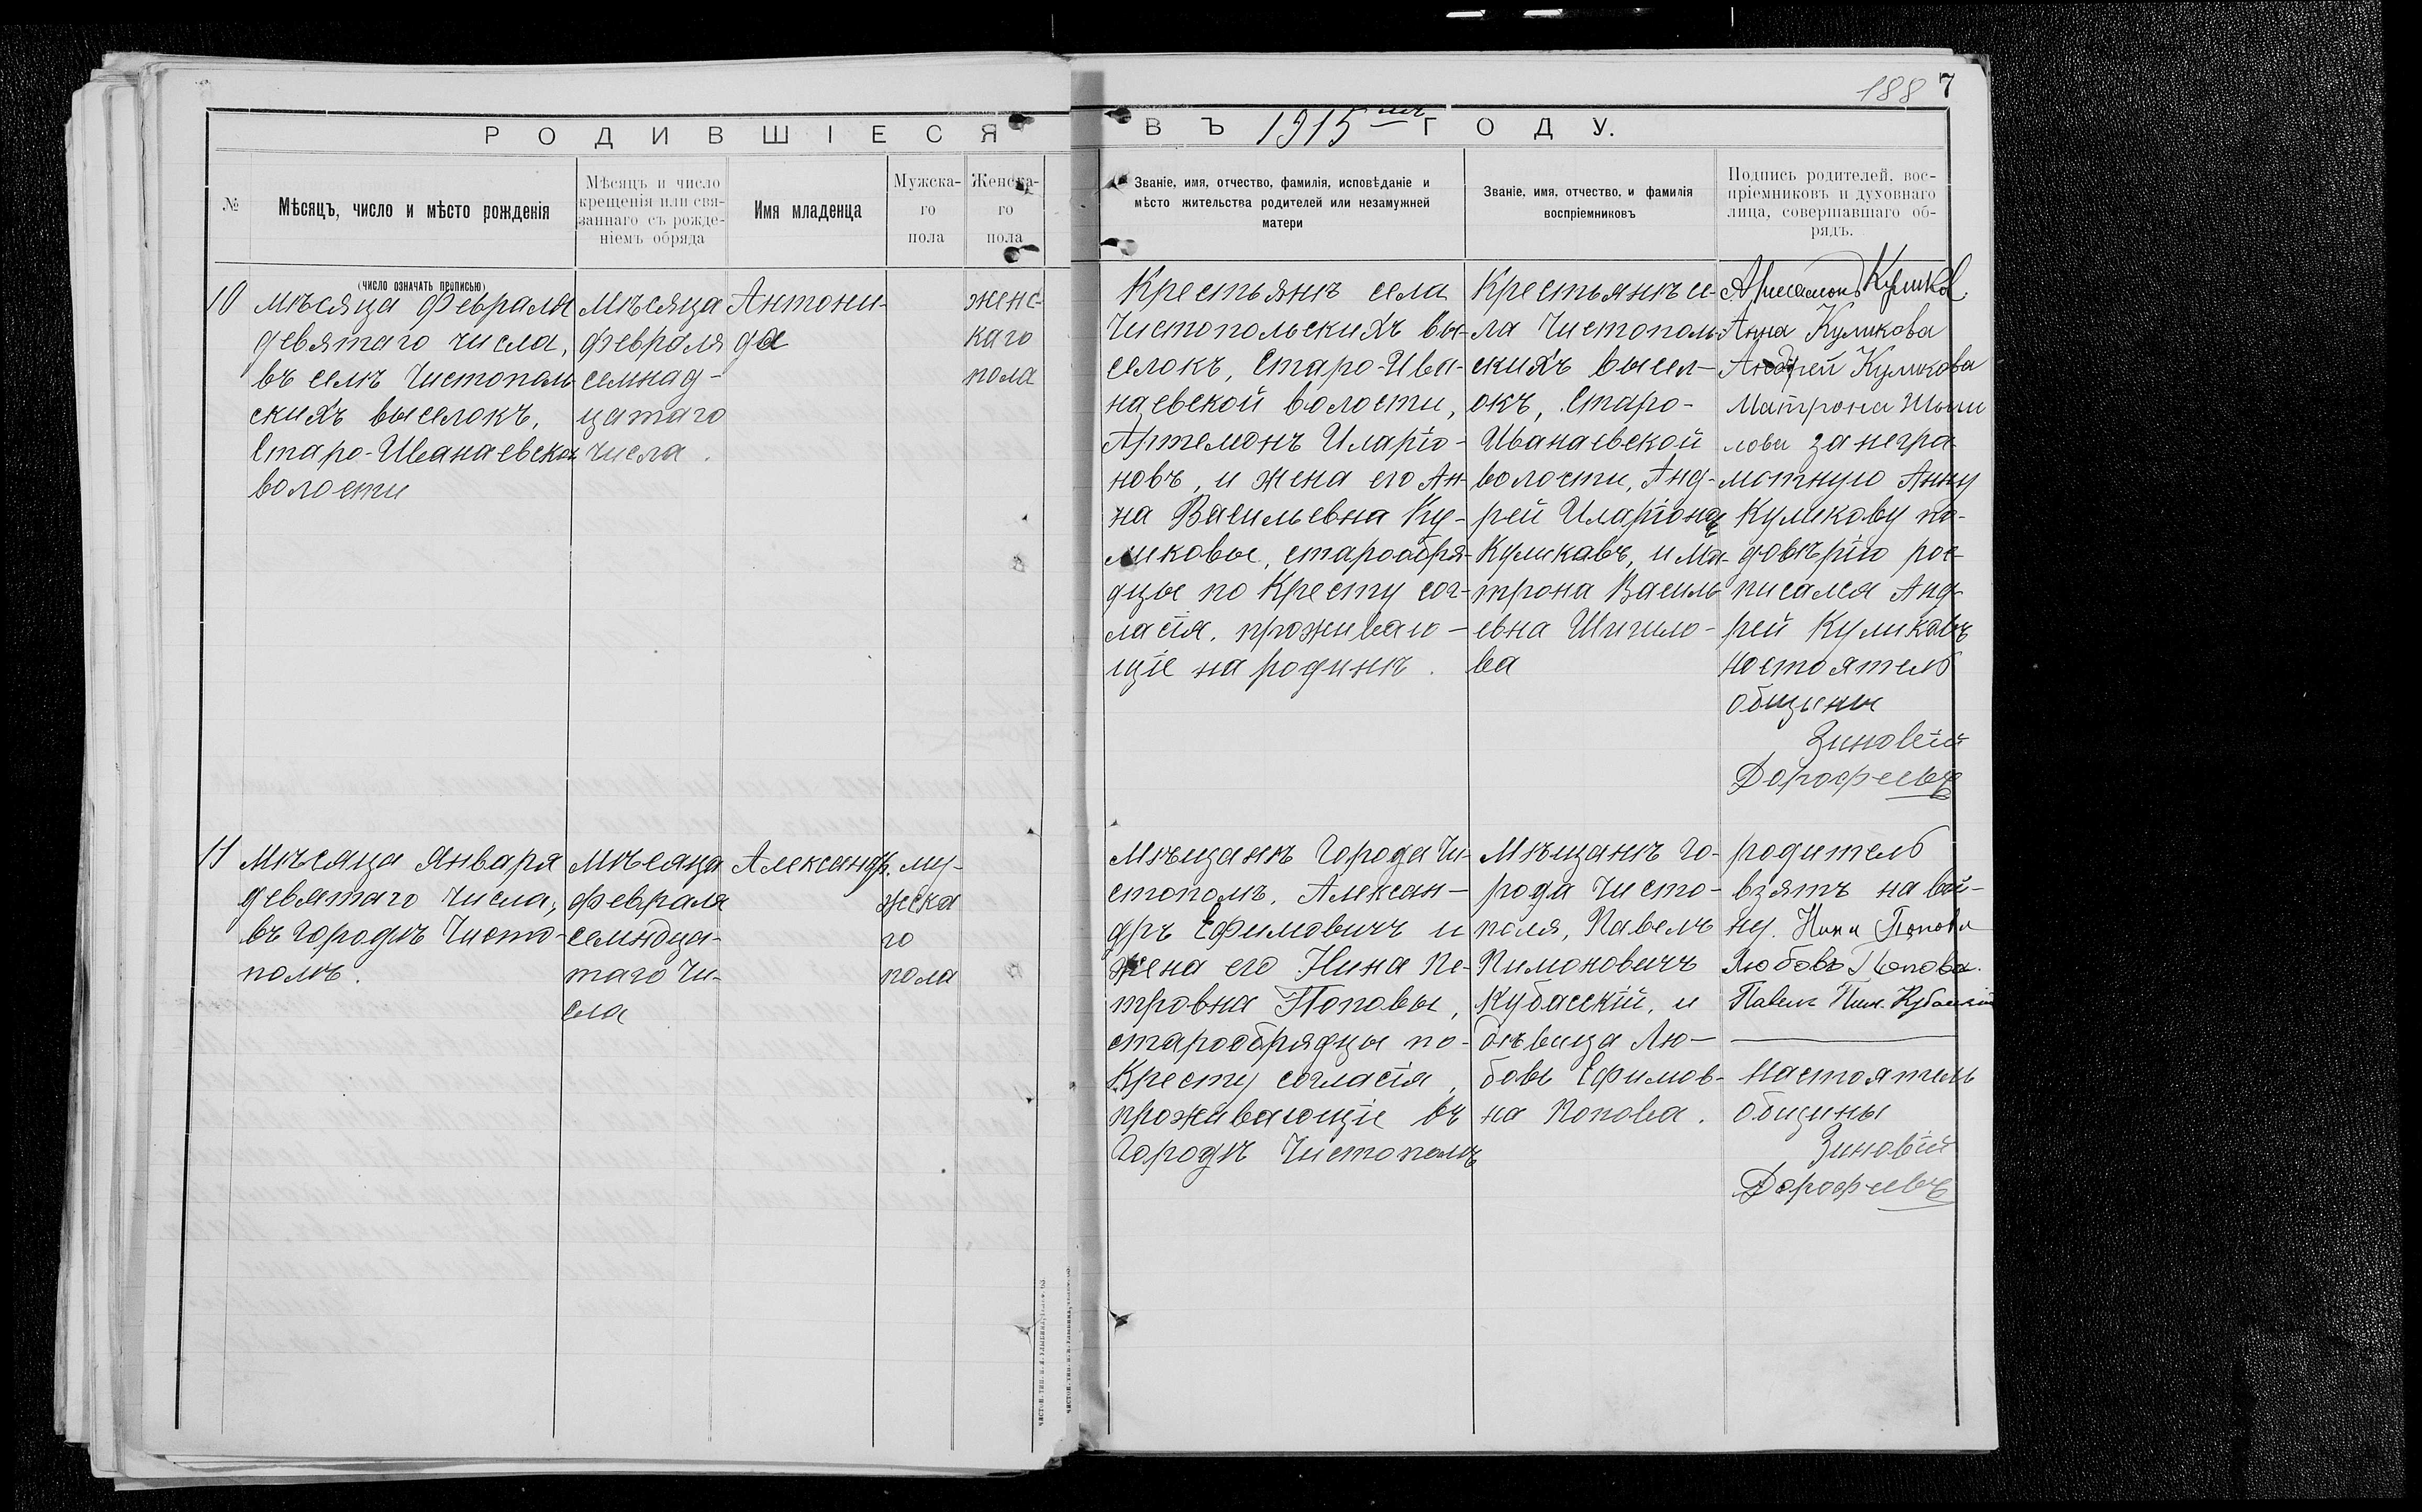 188 7
РОДИВШІЕСЯ ВЪ 1915 мъ ГОДУ.
№
Мѣсяцъ, число и мѣсто рожденія
(число означать прописью)
Мѣсяцъ и число
крещенія или свя-
заннаго съ рожде-
ніемъ обряда
Имя младенца
Мужска-
го
пола
Женска-
го
пола
Званіе, имя, отчество, фамилія, исповѣданіе и
мѣсто жительства родителей или незамужней
матери
Званіе, имя, отчество, и фамилія
воспріемниковъ
Подпись родителей, вос-
пріемниковъ и духовнаго
лица, совершавшаго об-
рядъ.
10
мѣсяца Февраля
девятаго числа,
въ селѣ Чистополь
скихъ выселокъ,
Старо-Иванаевской
волости
Мѣсяца
февраля
семнад-
цатаго
числа.
Антони-
да
женс-
каго
пола
Крестьянъ села
Чистопольскихъ вы-
селокъ, Старо-Ива-
наевской волости,
Артемонъ Иларіо-
новъ, и жена его Ан-
на Васильевна Ку-
ликовы, старообря-
дцы по Кресту сог-
ласія, проживаю-
щіе на родинѣ.
Крестьянъ се-
ла Чистополь-
скихъ высел-
окъ, Старо-
Иванаевской
волости, Анд-
рей Иларіонов
Куликавъ, и Ма-
трона Василь
евна Шигило-
ва
Куликов
Анна Куликова
Андрей Куликова
Матрона
лова за негра-
мотную Анну
Куликову по-
довѣрію рос-
писался Анд-
рей Куликавъ
Настоятель
общины
Зиновій
Дорофеевъ
11
Мѣсяца Января
девятаго числа,
въ городѣ Чисто-
полѣ.
Мѣсяца
февраля
семндца-
таго чи-
сла
Александр.
му-
жска
го
пола
Мѣщанъ города Чи-
стополь, Алексан-
дръ Ефимовичъ и
жена его Нина Пе-
тровна Поповы,
старообрядцы по-
Кресту согласія,
проживающіе въ
городѣ Чистополѣ
Мѣщанъ го-
рода Чисто-
поля, Павелъ
Пимоновичъ
Кубасскій, и
дѣвица Лю-
бовь Ефимов-
на Попова.
родитель
взятъ на вой-
ну. Нина Попова
Любовь Попова.
Павелъ Пим. Кубасскій
Настоятель
общины
Зиновій
Дорофеевъ